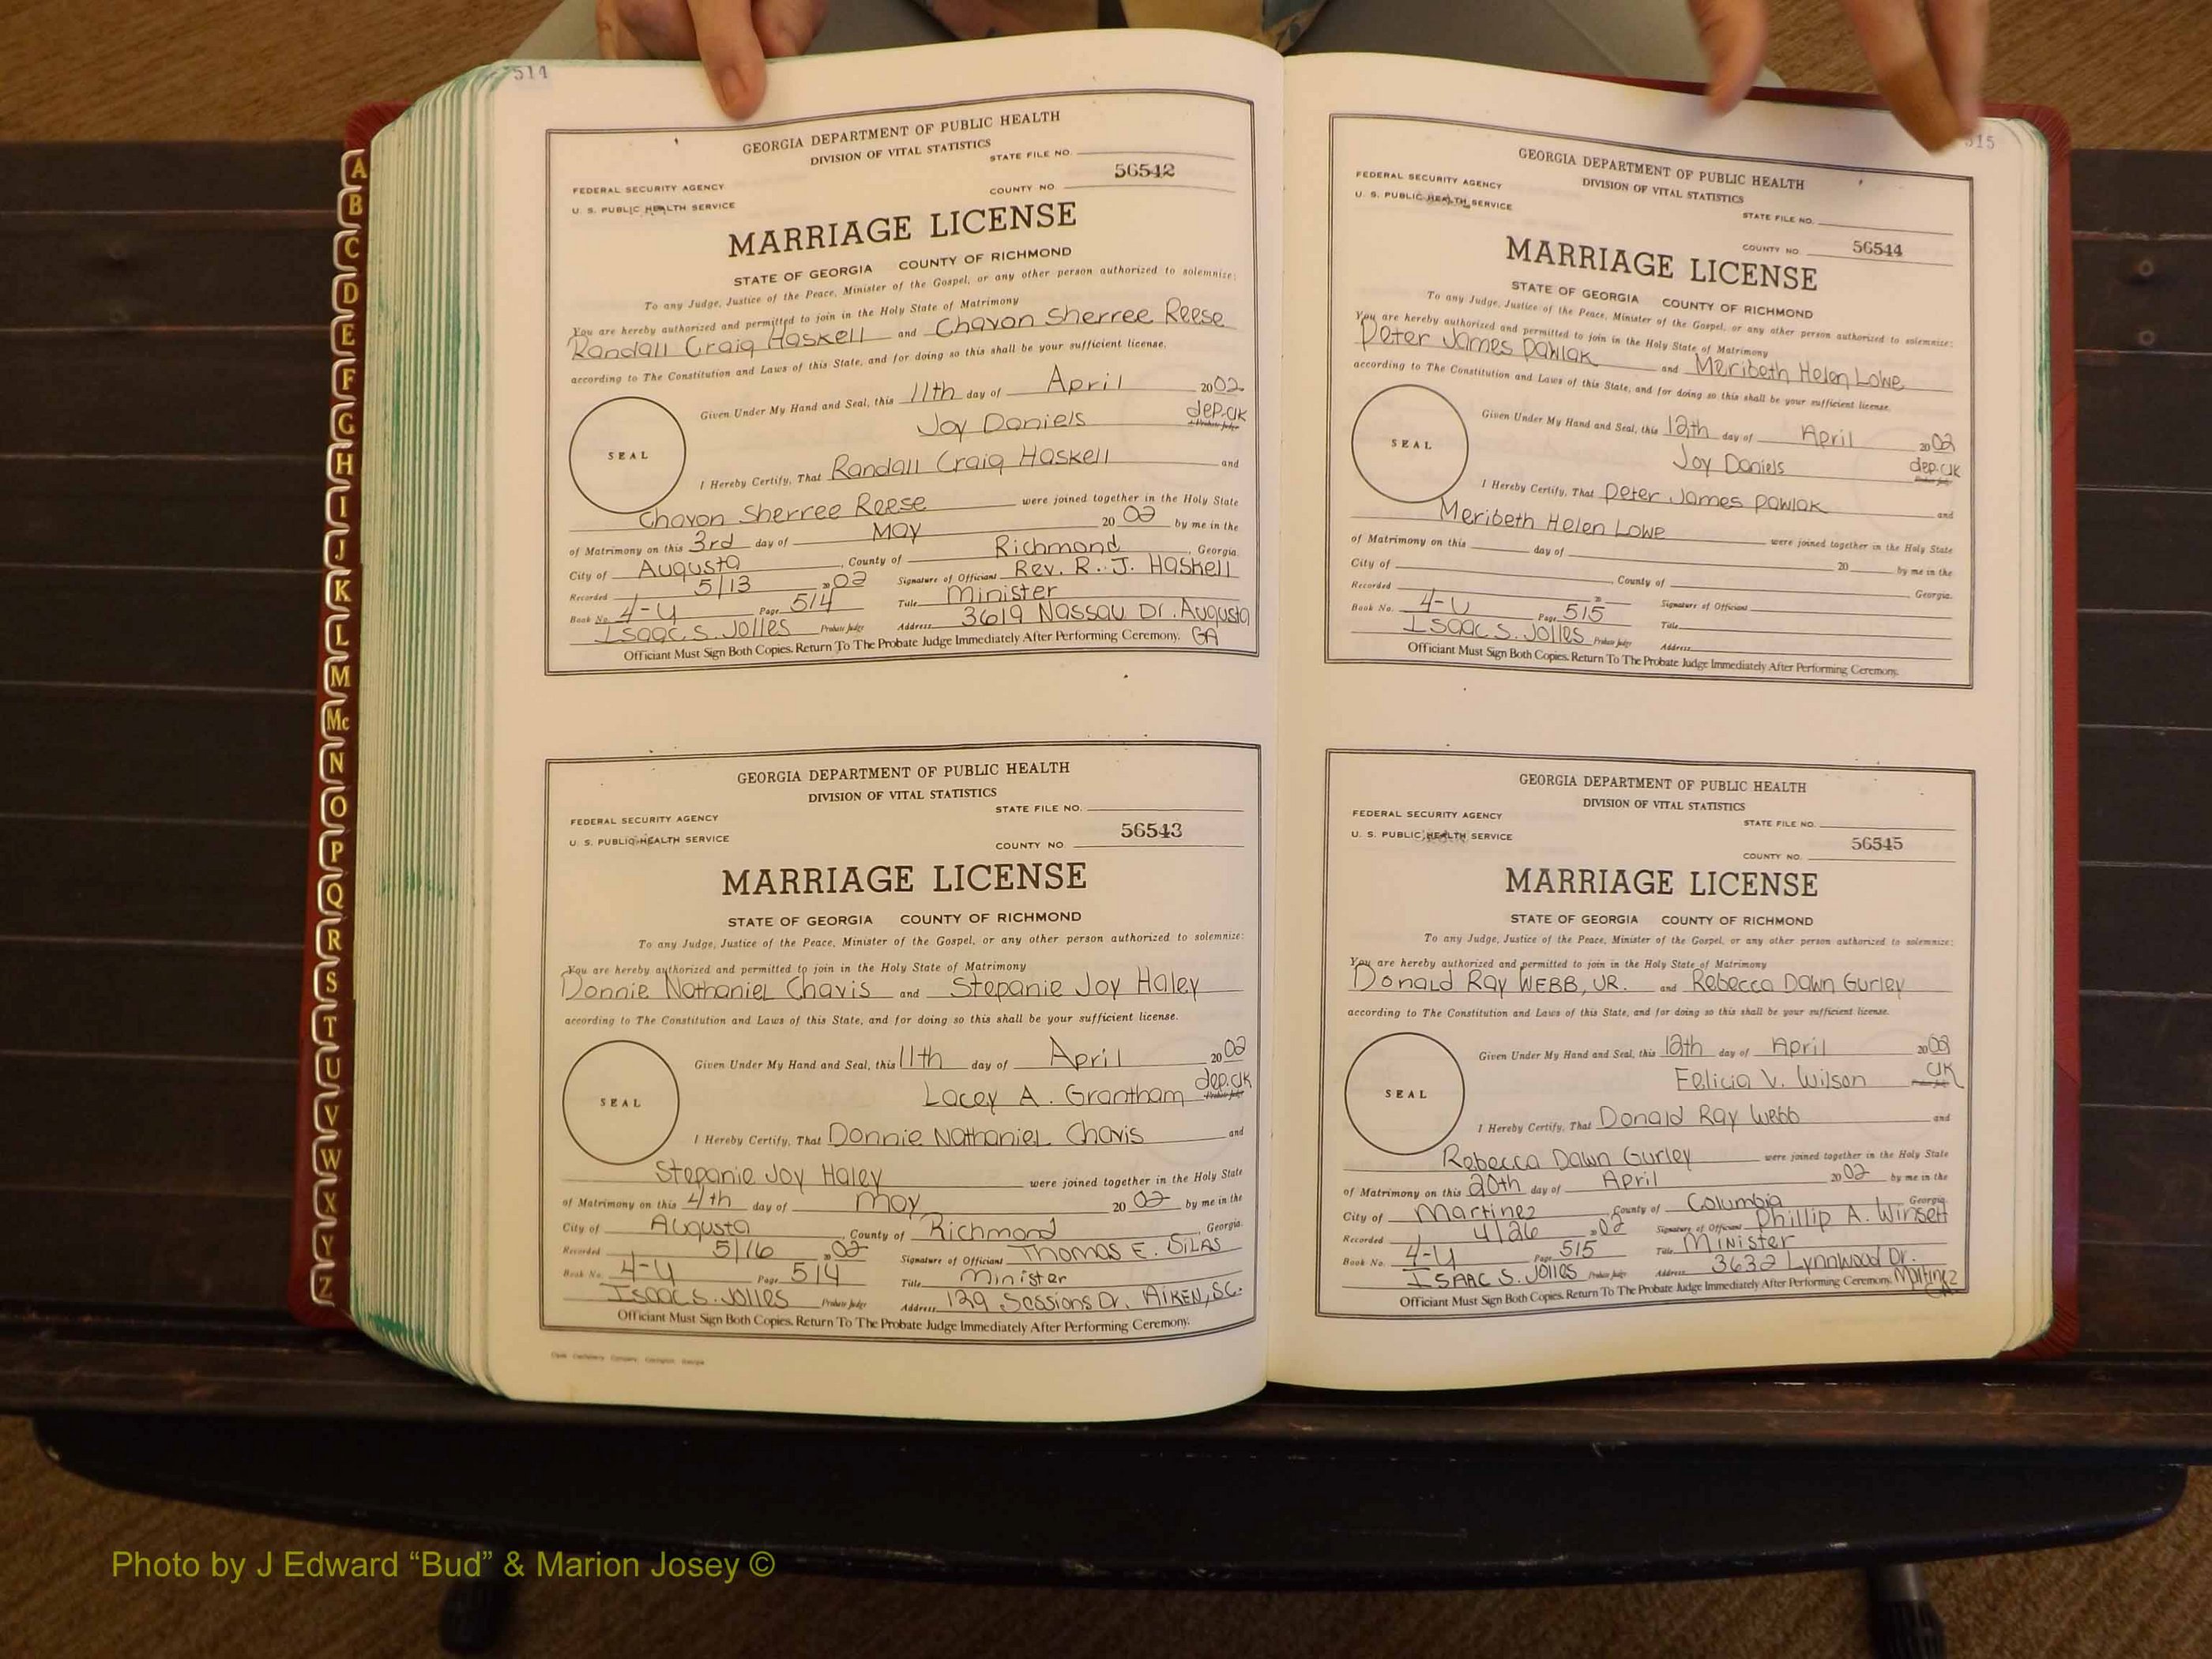 A
B
C
D
E
F
G
H
I
J
K
L
M
Mc
N
O
P
Q
R
S
T
U
V
W
X
Y
Z
514
GEORGIA DEPARTMENT OF PUBLIC HEALTH
DIVISION OF VITAL STATISTICS
STATE FILE NO.
FEDERAL SECURITY AGENCY
56542
U. S. PUBLIC HEALTH SERVICE
COUNTY NO
MARRIAGE LICENSE
STATE OF GEORGIA COUNTY OF RICHMOND
To any Judge, Justice of the Peace, Minister of the Gospel, or any other person authorized to solemnize:
You are hereby authorized and permitted to join in the Holy State of Matrimony
Randall Craig Haskell and Chavon Sherree Reese
according to The Constitution and Laws of this State, and for doing so this shall be your sufficient license.
Given Under My Hand and Seal, this 11th day of April 2002
Joy Daniels dep.clk
Probate Judge
SEAL
I Hereby Certify, That Randall Craig Haskell and
Chavon Sherree Reese were joined together in the Holy State
of Matrimony on this 3rd day of May 20 02 by me in the
City of Augusta, County of Richmond, Georgia.
Recorded 5/13 20 02 Signature of Officiant Rev. R. J. Haskell
Book No. 4-U Page 514 Title Minister
Isaac S. Jolles Probate Judge Address 3619 Nassau Dr. Augusta
GA
Officiant Must Sign Both Copies. Return To The Probate Judge Immediately After Performing Ceremony.
GEORGIA DEPARTMENT OF PUBLIC HEALTH
DIVISION OF VITAL STATISTICS
STATE FILE NO.
FEDERAL SECURITY AGENCY
56543
U. S. PUBLIC HEALTH SERVICE
COUNTY NO.
MARRIAGE LICENSE
STATE OF GEORGIA COUNTY OF RICHMOND
To any Judge, Justice of the Peace, Minister of the Gospel, or any other person authorized to solemnize:
You are hereby authorized and permitted to join in the Holy State of Matrimony
Donnie Nathaniel Chavis and Stepanie Joy Haley
according to The Constitution and Laws of this State, and for doing so this shall be your sufficient license.
Given Under My Hand and Seal, this 11th day of April 2002
Lacey A. Grantham dep.clk
Probate Judge
SEAL
I Hereby Certify, That Donnie Nathaniel Chavis and
Stepanie Joy Haley were joined together in the Holy State
of Matrimony on this 4th day of May 20 02 by me in the
City of Augusta, County of Richmond, Georgia.
Recorded 5/16 20 02 Signature of Officiant Thomas E. Silas
Book No. 4-U Page 514 Title Minister
Isaac S. Jolles Probate Judge Address 129 Sessions Dr. Aiken, SC.
Officiant Must Sign Both Copies. Return To The Probate Judge Immediately After Performing Ceremony.
515
GEORGIA DEPARTMENT OF PUBLIC HEALTH
DIVISION OF VITAL STATISTICS
FEDERAL SECURITY AGENCY
U. S. PUBLIC HEALTH SERVICE
STATE FILE NO.
COUNTY NO. 56544
MARRIAGE LICENSE
STATE OF GEORGIA COUNTY OF RICHMOND
To any Judge, Justice of the Peace, Minister of the Gospel, or any other person authorized to solemnize:
You are hereby authorized and permitted to join in the Holy State of Matrimony
Peter James Pawlak and Meribeth Helen Lowe
according to The Constitution and Laws of this State, and for doing so this shall be your sufficient license.
Given Under My Hand and Seal, this 12th day of April 2002
Joy Daniels dep.clk
Probate Judge
SEAL
I Hereby Certify, That Peter James Pawlak and
Meribeth Helen Lowe were joined together in the Holy State
of Matrimony on this day of 20 by me in the
City of , County of Georgia.
Recorded 20 Signature of Officiant
Book No. 4-U Page 515 Title
Isaac S. Jolles Probate Judge Address
Officiant Must Sign Both Copies. Return To The Probate Judge Immediately After Performing Ceremony.
GEORGIA DEPARTMENT OF PUBLIC HEALTH
DIVISION OF VITAL STATISTICS
FEDERAL SECURITY AGENCY
STATE FILE NO.
U. S. PUBLIC HEALTH SERVICE
56545
COUNTY NO.
MARRIAGE LICENSE
STATE OF GEORGIA COUNTY OF RICHMOND
To any Judge, Justice of the Peace, Minister of the Gospel, or any other person authorized to solemnize:
You are hereby authorized and permitted to join in the Holy State of Matrimony
Donald Ray Webb, Jr. and Rebecca Dawn Gurley
according to The Constitution and Laws of this State, and for doing so this shall be your sufficient license.
Given Under My Hand and Seal, this 12th day of April 2002
Felicia V. Wilson Clk
SEAL
I Hereby Certify, That Donald Ray Webb and
Rebecca Dawn Gurley were joined together in the Holy State
of Matrimony on this 20th day of April 20 02 by me in the
City of Martinez, County of Columbia Georgia.
Recorded 4/26 20 02 Signature of Officiant Phillip A. Winsett
Book No. 4-U Page 515 Title Minister
Isaac S. Jolles Probate Judge Address 3632 Lynnwood Dr.
Martinez
Officiant Must Sign Both Copies. Return To The Probate Judge Immediately After Performing Ceremony.
Photo by J Edward “Bud” & Marion Josey ©